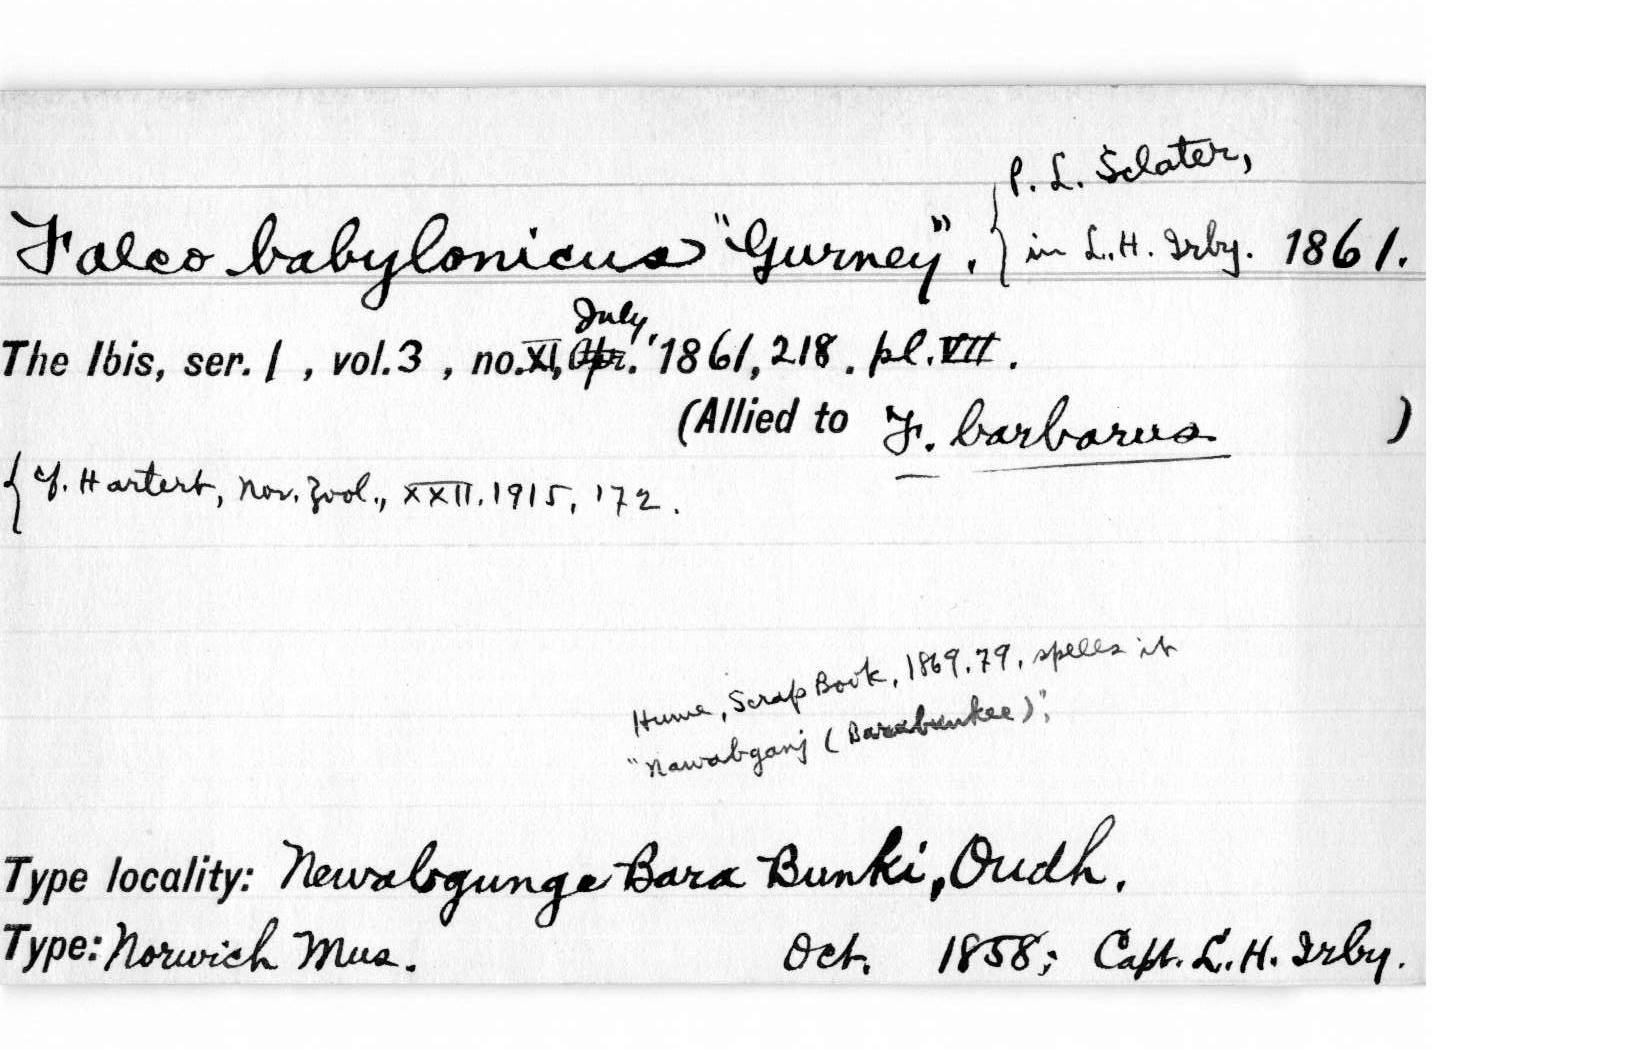 Falco babylonicus "Gurney". { P. L. Sclater,
in L. H. Irby. 1861.
The Ibis, ser. 1, vol. 3, no. XI, Apr. July, 1861, 218. pl. VII.
(Allied to F. barbarus )
{ cf. Hartert, Nov. Zool., XXII. 1915, 172.
Hume, Scrap Book, 1869, 79, spells it
"Nawabganj (Barabunkee)".
Type locality: Newabgunge Bara Bunki, Oudh.
Type: Norwich Mus. Oct. 1858; Capt. L. H. Irby.